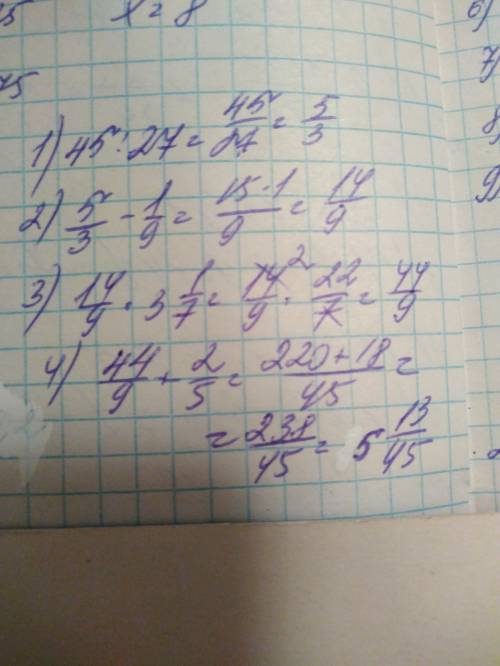 x = 8
75
1) 45 : 27 = 45/27 = 5/3
2) 5/3 - 1/9 = 15-1/9 = 14/9
3) 14/9 · 3 1/7 = 14/9 ² · 22/7 = 44/9
4) 44/9 + 2/5 = 220+18/45 =
= 238/45 = 5 13/45
6)
7)
8)
9)